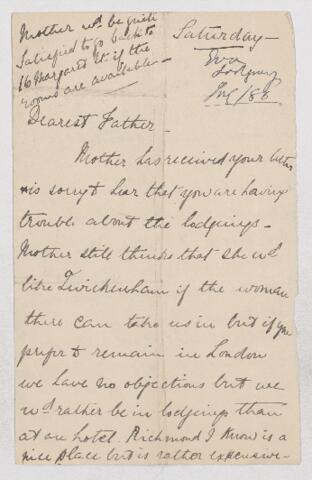 Mother wd be quite
satisfied to go back to
16 Margaret St. if the
rooms are available -
Saturday -
Eva
Lodgings
/88
Dearest Father -
Mother has received your letter
& is sorry to hear that you are having
trouble about the lodgings -
Mother still thinks that she wd
like Twickenham if the woman
there can take us in but if you
prefer to remain in London
we have no objections but we
wd rather be in lodgings than
at an hotel. Richmond I know is a
nice place but is rather expensive -